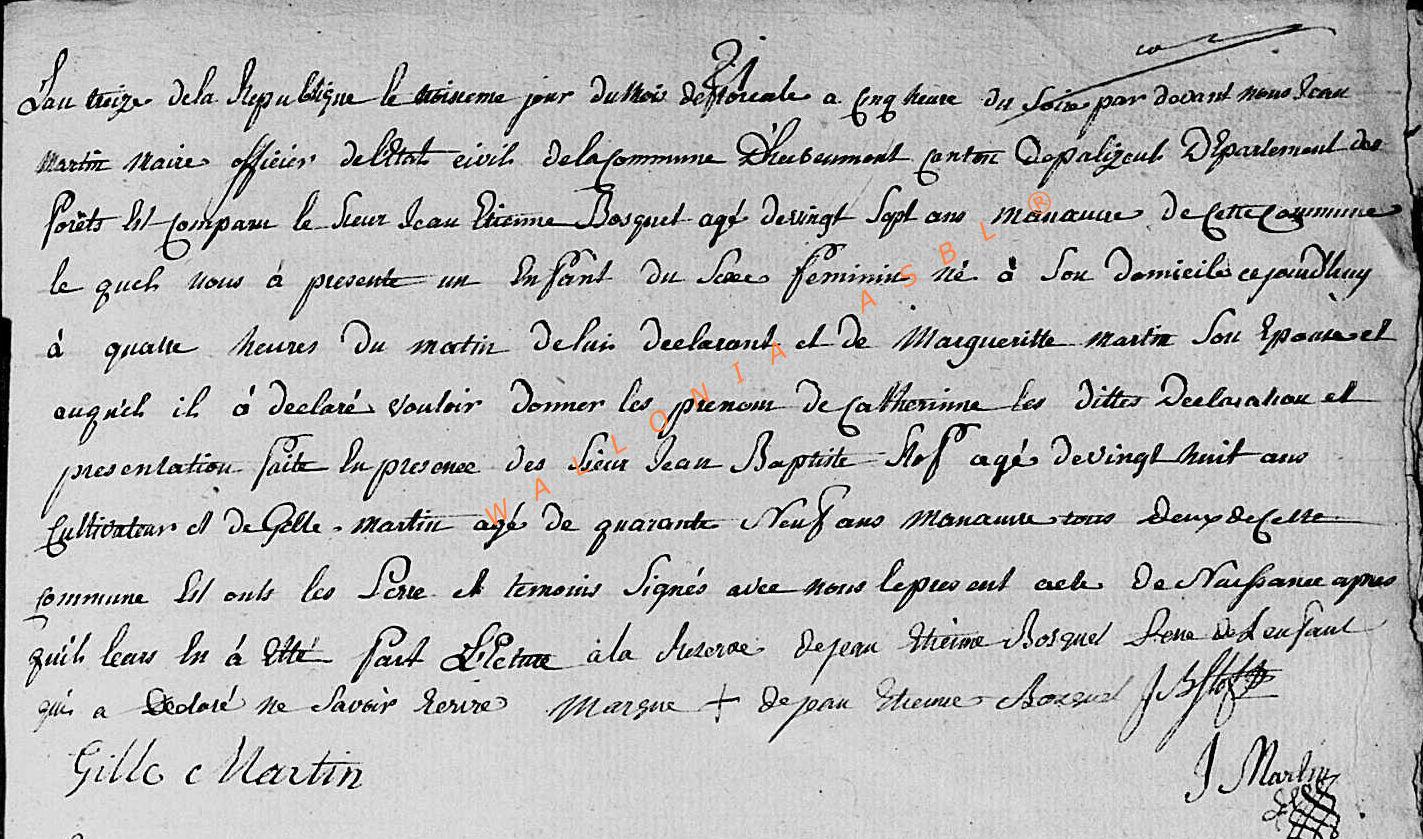 L'an treize de la Republique le troisieme jour du mois de floreale a cinq heure du soire par devant nous Jean
Martin Maire officier de l'Etat civils de la Commune D'herbeumont canton Depalizeul Département des
forêts Est Comparu le sieur Jean Etienne Bosquet agé devingt Sept ans manauvre de Cette Commune
le quel nous à presente un Enfant du Sexe feminin né à Son domicile cejourdhuy
à quatre heures du matin de lui declarant et de Margueritte Martin Son Epouse et
auquels il à declaré vouloir donner les prenom de Catherinne les dittes Declaration et
presentation faite En presence des Sieur Jean Baptiste Stof agé devingt huit ans
Cultivateur et de Gille Martin agé de quarante Neuf ans Manauvre tous Deux de Cette
commune Est onts les Perre et temoins Signés avec nous le present acte de Naissance apres
qu'ils leurs En à Etté fait LEcture à la Reserve de jean Etienne Bosquet Perre de L'enfant
qui a Declaré ne Savoir Ecrire Marque + de jean Etienne Bosquet J B Stof
Gille Martin J Martin
WALLONIA ASBL ®